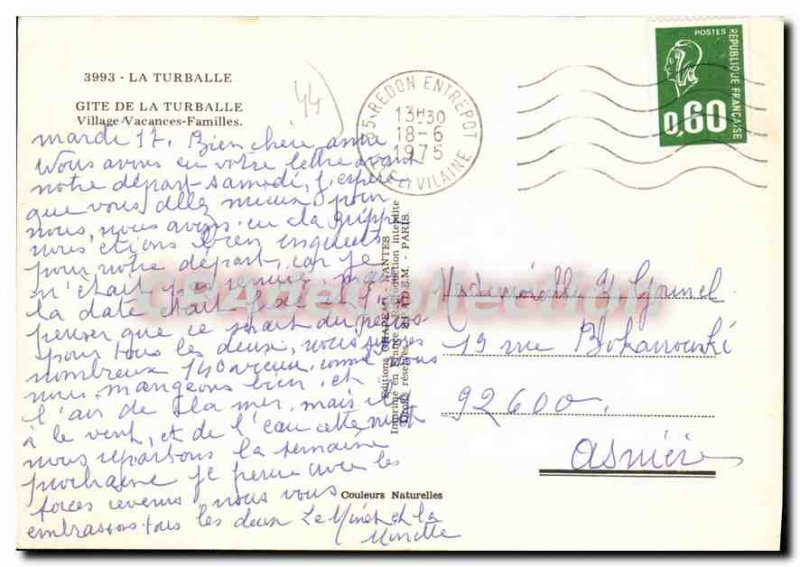 3993 - LA TURBALLE
GITE DE LA TURBALLE
Village-Vacances-Familles.
44
35-REDON ENTREPOT
13H30
18-6
1975
ILLE ET VILAINE
POSTES
REPUBLIQUE FRANÇAISE
0,60
mardi 17. Bien chère amie
Nous avons eu votre lettre avant
notre départ samedi, j'espère
que vous allez mieux, pour
nous, nous avons eu la grippe
nous étions bien inquiets
pour notre départ, car je
n'était pas
la date était
penser que ce serait du
pour tous les deux, nous sommes
nombreux 140 comme vous
nous mangeons bien, et
l'air de la mer, mais il y
à le vent, et de l'eau cette nuit
nous repartons la semaine
prochaine je pense avec les
forces revenus, nous vous
embrassons tous les deux Le Minet et la
Minette
Editions CHAPEAU - NANTES
Imprimé en France - Reproduction interdite
Couleurs Naturelles
Mademoiselle
19 rue Bokanowski
92600.
Asnières